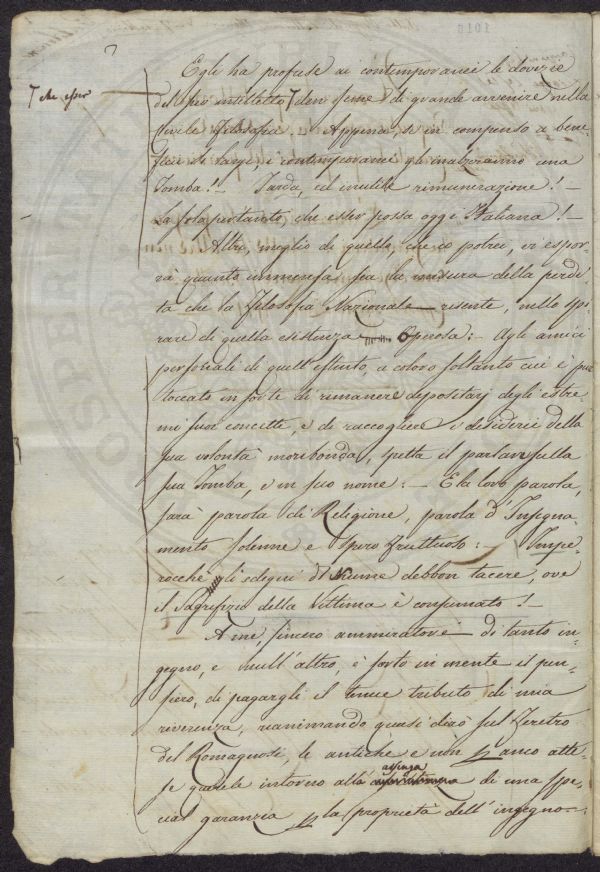 Egli ha profuse ai contemporanei le dovizie
che esser
del suo intelletto den seme di grande avvenire nella
Civile Filosofia. Appena, se in compenso a bene-
fizi sì larghi, i contemporanei gli inalzeranno una
Tomba! — Tarda, ed inutile rimunerazione! —
La sola pertanto, che esser possa oggi Italiana! —
Altri, meglio di quello, che io potrei, vi espor-
rà quanto immensa sia la misura della perdi-
ta che la filosofia Nazionale risente, nello spi-
rare di quella esistenza Operosa: — Agli amici
personali di quell'estinto, a coloro soltanto cui è pur
toccato in sorte di rimanere depositarj degli estre-
mi suoi concetti, e di raccogliere i desiderii della
sua volontà moribonda, spetta il parlare sulla
sua Tomba, e in suo nome: — E la loro parola,
sarà parola di Religione, parola d'Insegna-
mento solenne e spero fruttuoso: — Impe-
rocchè li sdegni di Nume debbon tacere, ove
il Sagrifizio della Vittima è consumato! —
A me, sincero ammiratore di tanto in-
gegno, e null'altro, è sorto in mente il pen-
siero, di pagargli il tenue tributo di mia
riverenza, rianimando quasi dirò sul Feretro
del Romagnosi, le antiche e non anco atte-
assenza
se querele intorno alla di una spe-
cial garanzia la proprietà dell'ingegno —